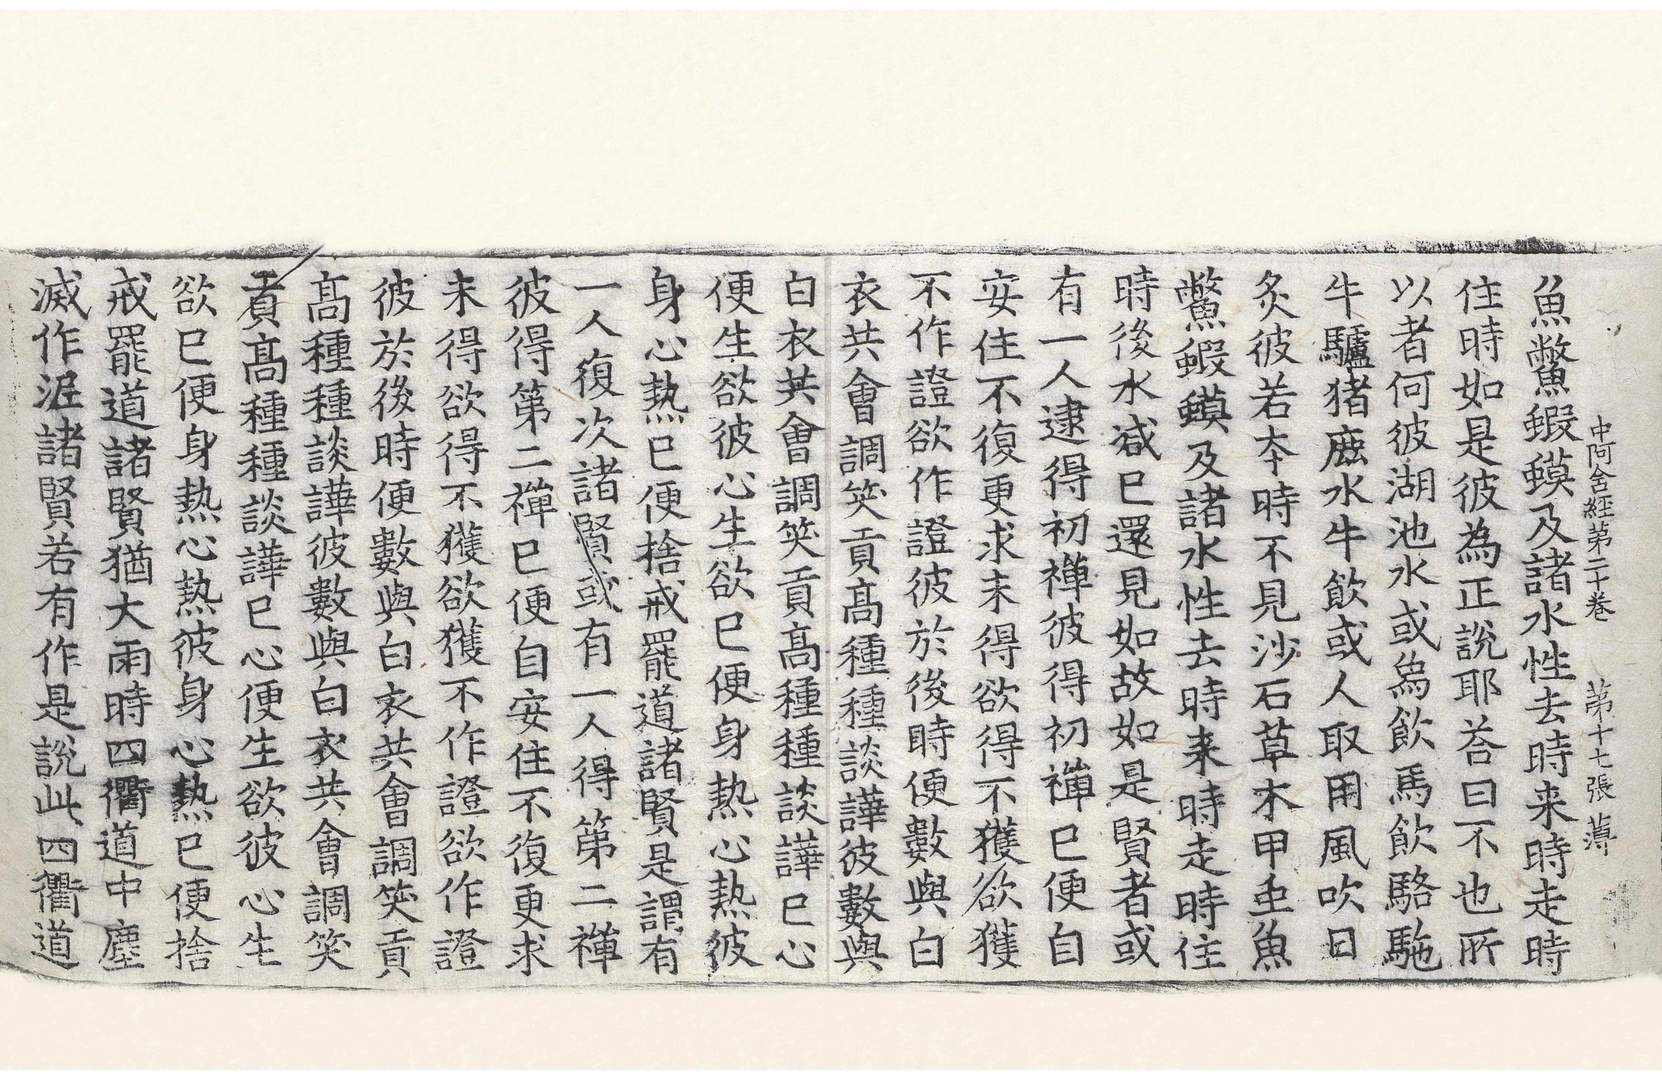 中阿含經第二十卷　第十七張　薄
魚鱉魚蝦蟇及諸水性去時来時走時
住時如是彼為正說耶荅曰不也所
以者何彼湖池水或烏飲馬飲駱駞
牛驢猪麃水牛飲或人取用風吹日
炙彼若夲時不見沙石草木甲䖝魚
鱉魚蝦蟇及諸水性去時来時走時住
時後水減巳還見如故如是賢者或
有一人逮得初禪彼得初禪巳便自
安住不復更求未得欲得不獲欲獲
不作證欲作證彼於後時便數與白
衣共會調笑貢髙種種談譁彼數與
白衣共會調笑貢髙種種談譁巳心
便生欲彼心生欲巳便身熱心熱彼
身心熱巳便捨戒罷道諸賢是謂有
一人復次諸賢或有一人得第二禪
彼得第二禪巳便自安住不復更求
未得欲得不獲欲獲不作證欲作證
彼於後時便數與白衣共會調笑貢
髙種種談譁彼數與白衣共會調笑
貢髙種種談譁巳心便生欲彼心生
欲巳便身熱心熱彼身心熱巳便捨
戒罷道諸賢猶大雨時四衢道中塵
滅作泥諸賢若有作是說此四衢道